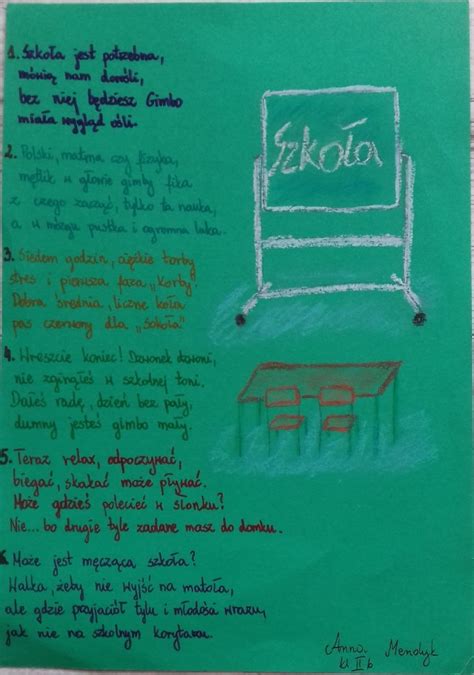 1. Szkoła jest potrzebna,
mówią nam dorośli,
bez niej będziesz Gimbo
miała wygląd ośli.
2. Polski, matma czy fizyka,
mętlik w głowie gimby fika
z czego zacząć, tylko ta nauka,
a w mózgu pustka i ogromna luka.
3. Siedem godzin, ciężkie torby
stres i pierwsza faza „Korby".
Dobra średnia, liczne koła
pas czerwony dla „Sokoła"
4. Wreszcie koniec! Dzwonek dzwoni,
nie zginąłeś w szkolnej toni.
Dałeś radę, dzień bez pały,
dumny jesteś gimbo mały.
5. Teraz relax, odpoczywać,
biegać, skakać może pływać.
Może gdzieś polecieć w słonku?
Nie... bo drugie tyle zadane masz do domku.
6. Może jest męcząca szkoła?
Walka, żeby nie wyjść na matoła,
ale gdzie przyjaciół tylu i młodości wrazu,
jak nie na szkolnym korytarzu.
Szkoła
Anna Mendyk
kl II b